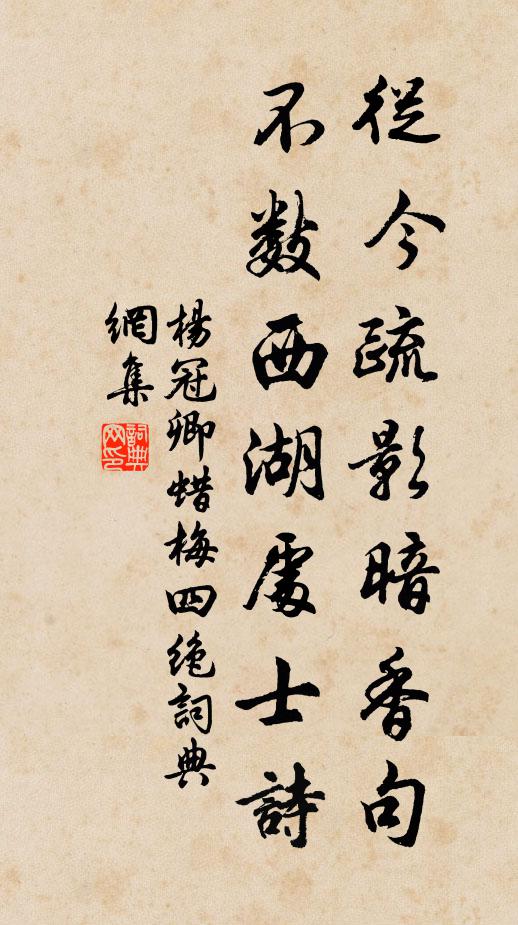 從今疏影暗香句
不數西湖處士詩
楊冠卿蜡梅四絶詞典
網集
詞典網印